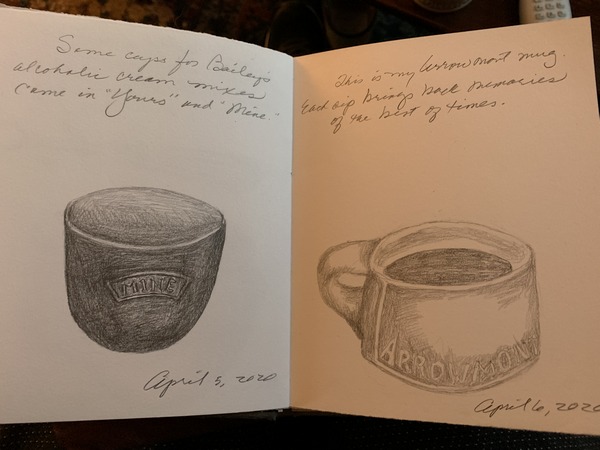 Some cups for Bailey's
alcoholic cream mixes
came in "Yours" and "Mine."
MINE
April 5, 2020
This is my Arrowmont mug.
Each sip brings back memories
of the best of times.
ARROWMONT
April 6, 2020